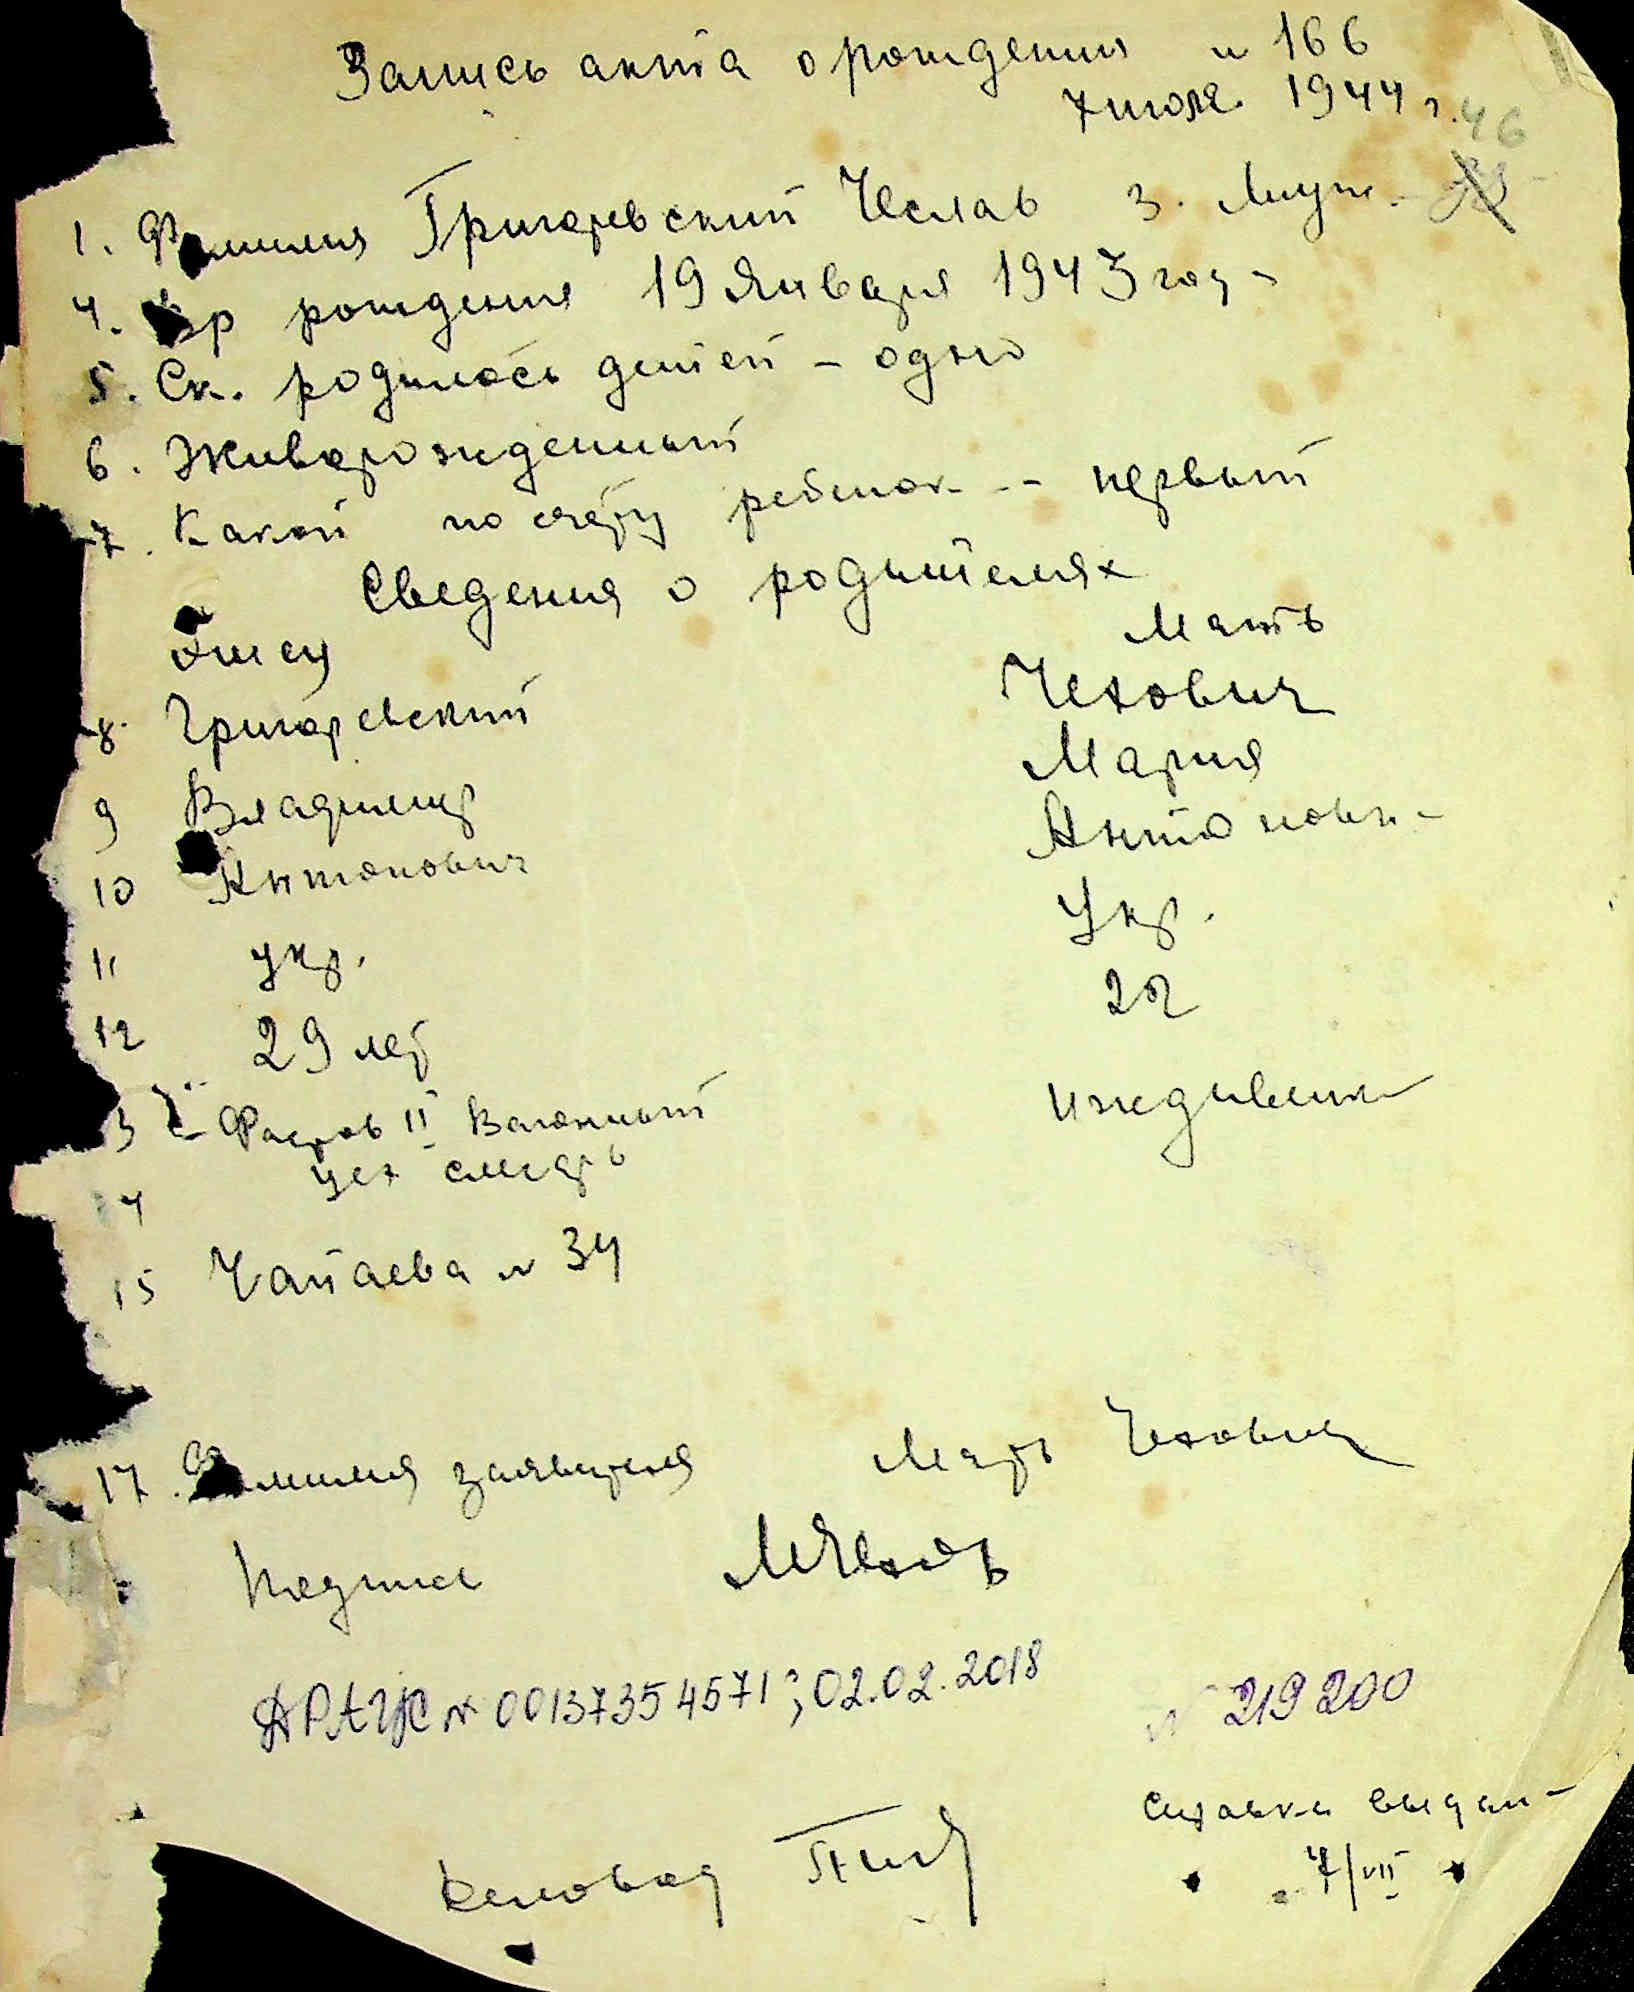 Запись акта о рождении N 166
7 июля 1944 г.
46
1. Фамилия Григоревский Чеслав 3. Муж.
4. Вр рождения 19 Января 1943 год
5. Ск. родилось детей - одно
6. Живорожденный
7. Какой по счету ребенок -- первый
Сведения о родителях
Отец Мать
8. Григоревский Чехович
9 Владимир Мария
10 Антонович Антоновн-
11 укр. Укр.
12 29 лет 22
13 Фастов II Вагонный иждивенк
цех слесарь
14
15 Чапаева N 34
17. Фамилия заявителя Мать Чехович
Подпись
ДРАЦС N 00137354571; 02.02.2018
N 219200
Справка выдан-
Деловод 7/VII